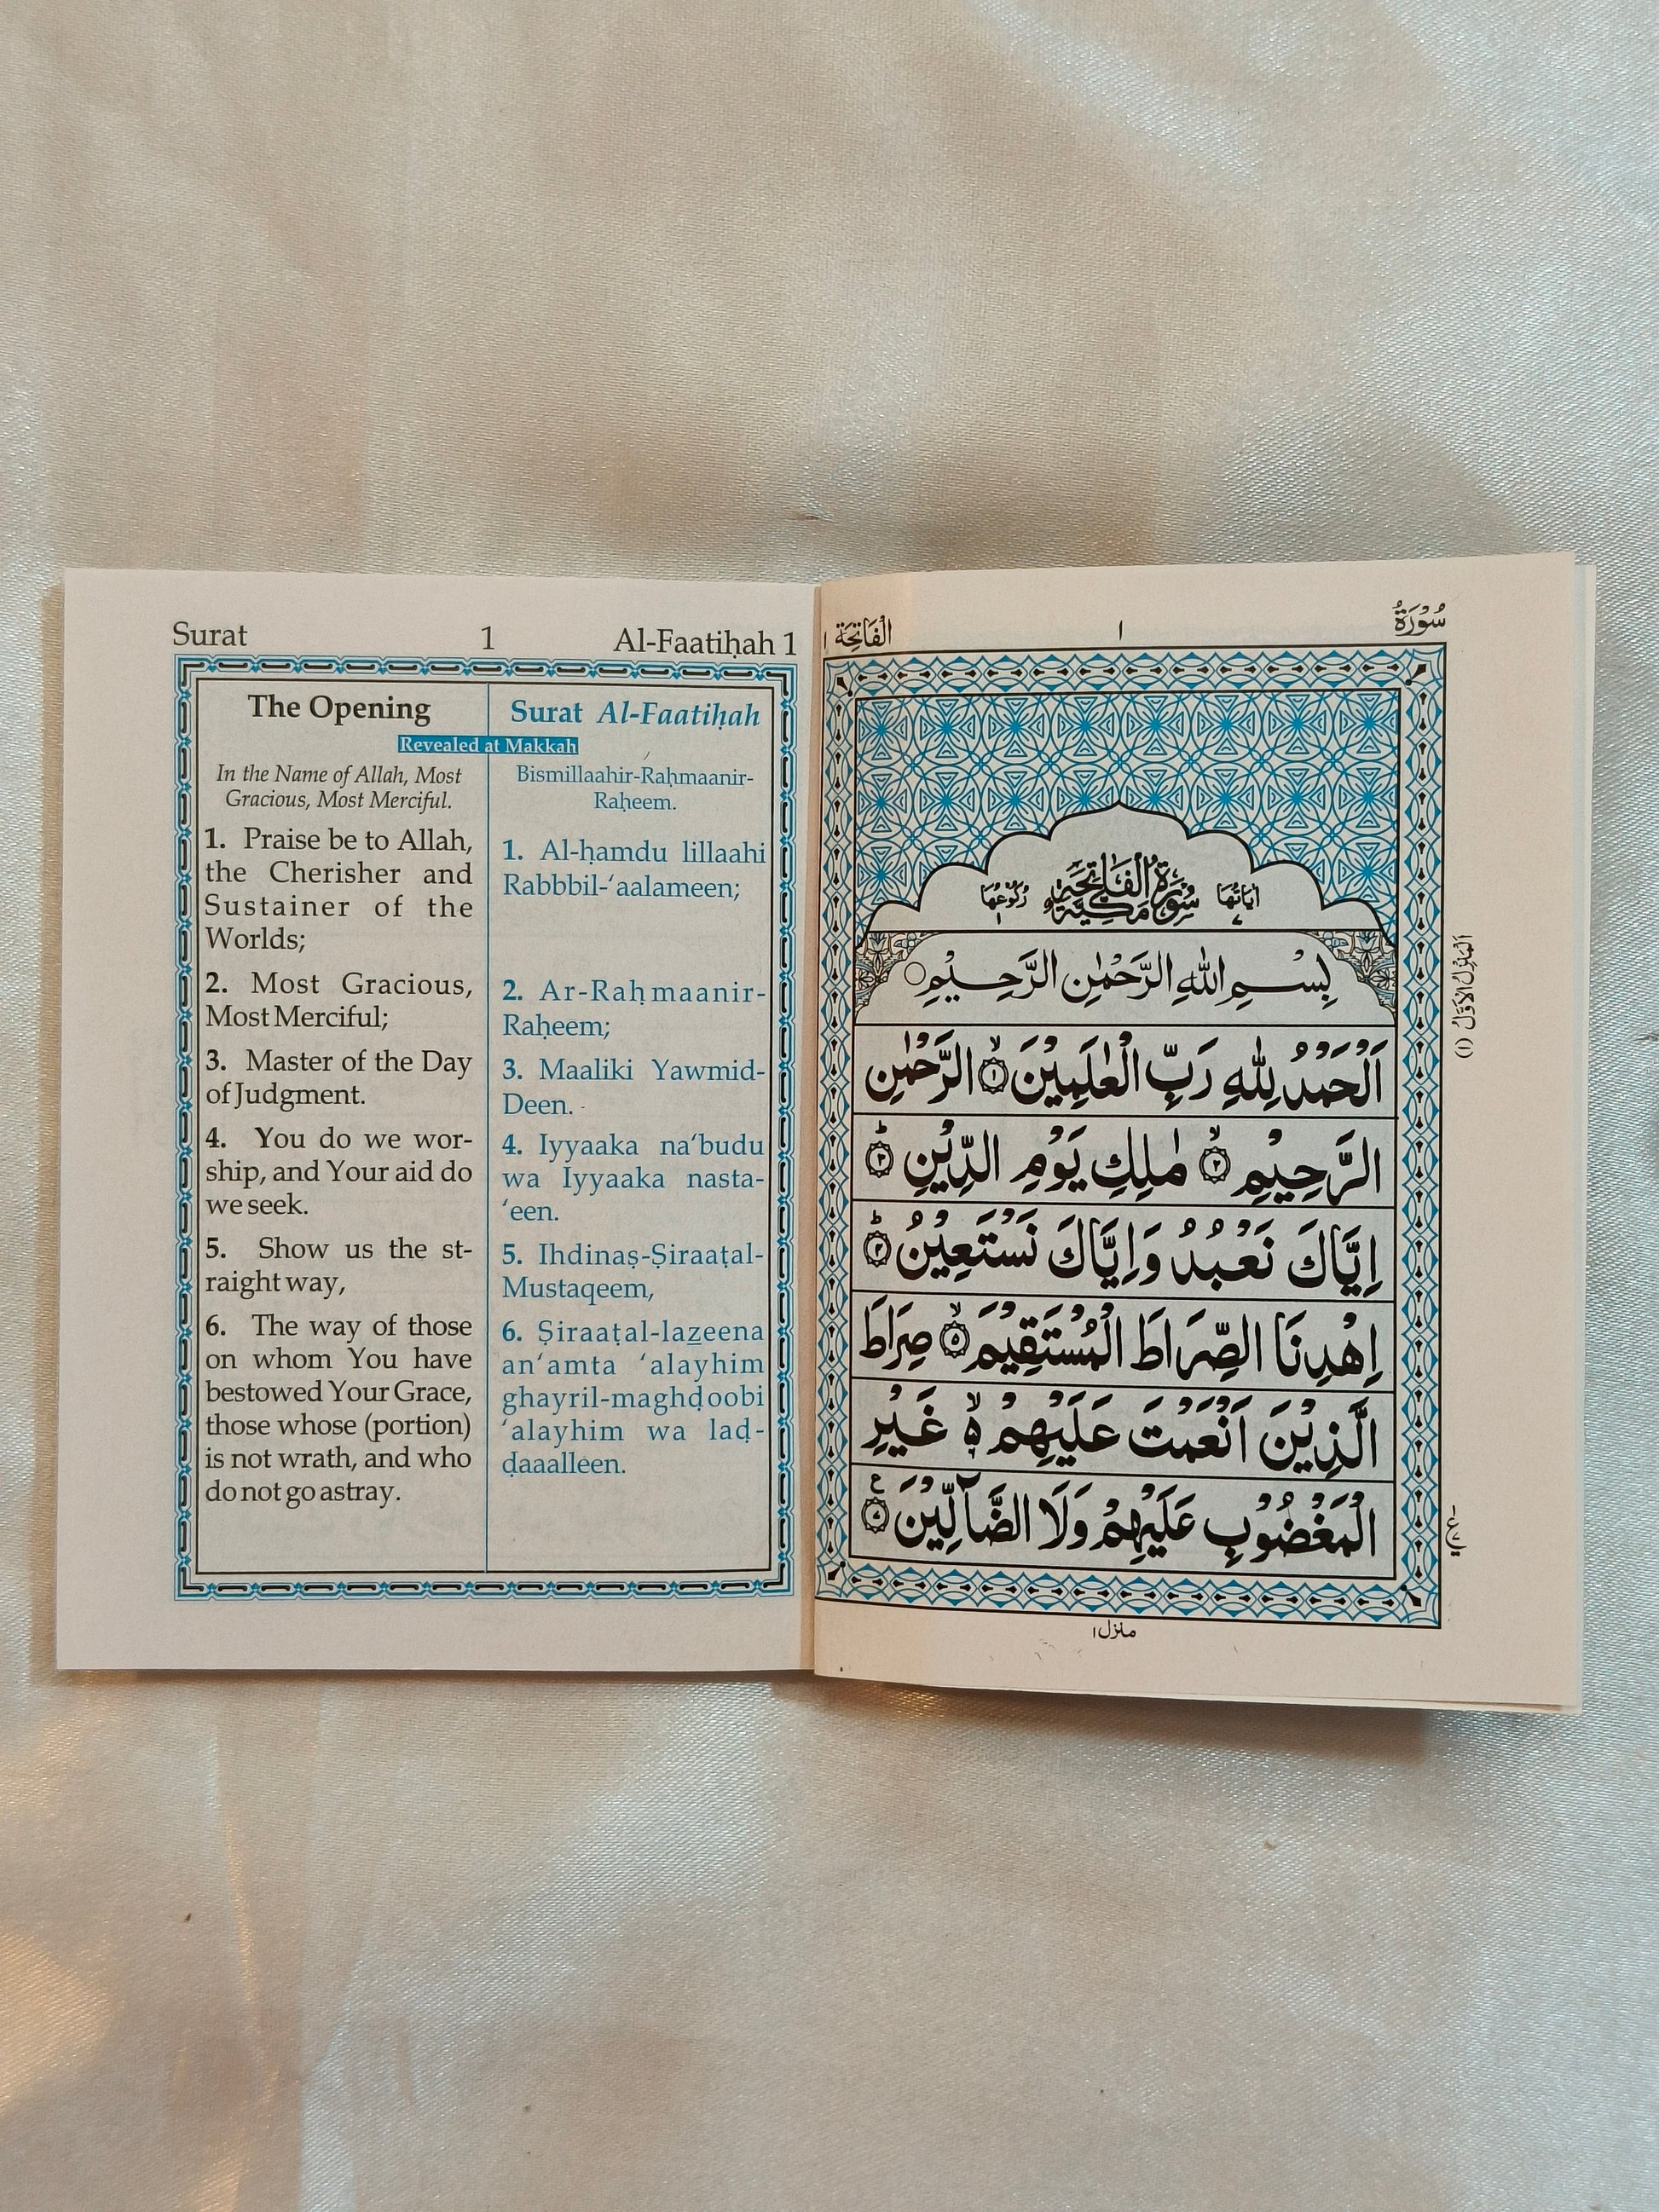 Surat 1 Al-Faatiḥah 1
The Opening
Surat Al-Faatiḥah
Revealed at Makkah
In the Name of Allah, Most
Gracious, Most Merciful.
1. Praise be to Allah,
the Cherisher and
Sustainer of the
Worlds;
2. Most Gracious,
Most Merciful;
3. Master of the Day
of Judgment.
4. You do we wor-
ship, and Your aid do
we seek.
5. Show us the st-
raight way,
6. The way of those
on whom You have
bestowed Your Grace,
those whose (portion)
is not wrath, and who
do not go astray.
Bismillaahir-Raḥmaanir-
Raḥeem.
1. Al-ḥamdu lillaahi
Rabbbil-‘aalameen;
2. Ar-Raḥmaanir-
Raḥeem;
3. Maaliki Yawmid-
Deen.
4. Iyyaaka na‘budu
wa Iyyaaka nasta-
‘een.
5. Ihdinaṣ-Ṣiraaṭal-
Mustaqeem,
6. Ṣiraaṭal-lazeena
an‘amta ‘alayhim
ghayril-maghḍoobi
‘alayhim wa laḍ-
ḍaaalleen.
سُوْرَةُ ١ الْفَاتِحَة ١
اٰيَاتُهَا ٧ سُوْرَةُ الْفَاتِحَةِ مَكِّيَّةٌ رُكُوْعُهَا ١
بِسْمِ اللهِ الرَّحْمٰنِ الرَّحِيْمِ
اَلْحَمْدُ لِلّٰهِ رَبِّ الْعٰلَمِيْنَ ۙ﴿١﴾ الرَّحْمٰنِ
الرَّحِيْمِ ۙ﴿٢﴾ مٰلِكِ يَوْمِ الدِّيْنِ ؕ﴿٣﴾
اِيَّاكَ نَعْبُدُ وَاِيَّاكَ نَسْتَعِيْنُ ؕ﴿٤﴾
اِهْدِنَا الصِّرَاطَ الْمُسْتَقِيْمَ ۙ﴿٥﴾ صِرَاطَ
الَّذِيْنَ اَنْعَمْتَ عَلَيْهِمْ ۙ۬ غَيْرِ
الْمَغْضُوْبِ عَلَيْهِمْ وَلَا الضَّآلِّيْنَ
اَلْمَنْزِلُ الْاَوَّلُ (١)
منزل ١